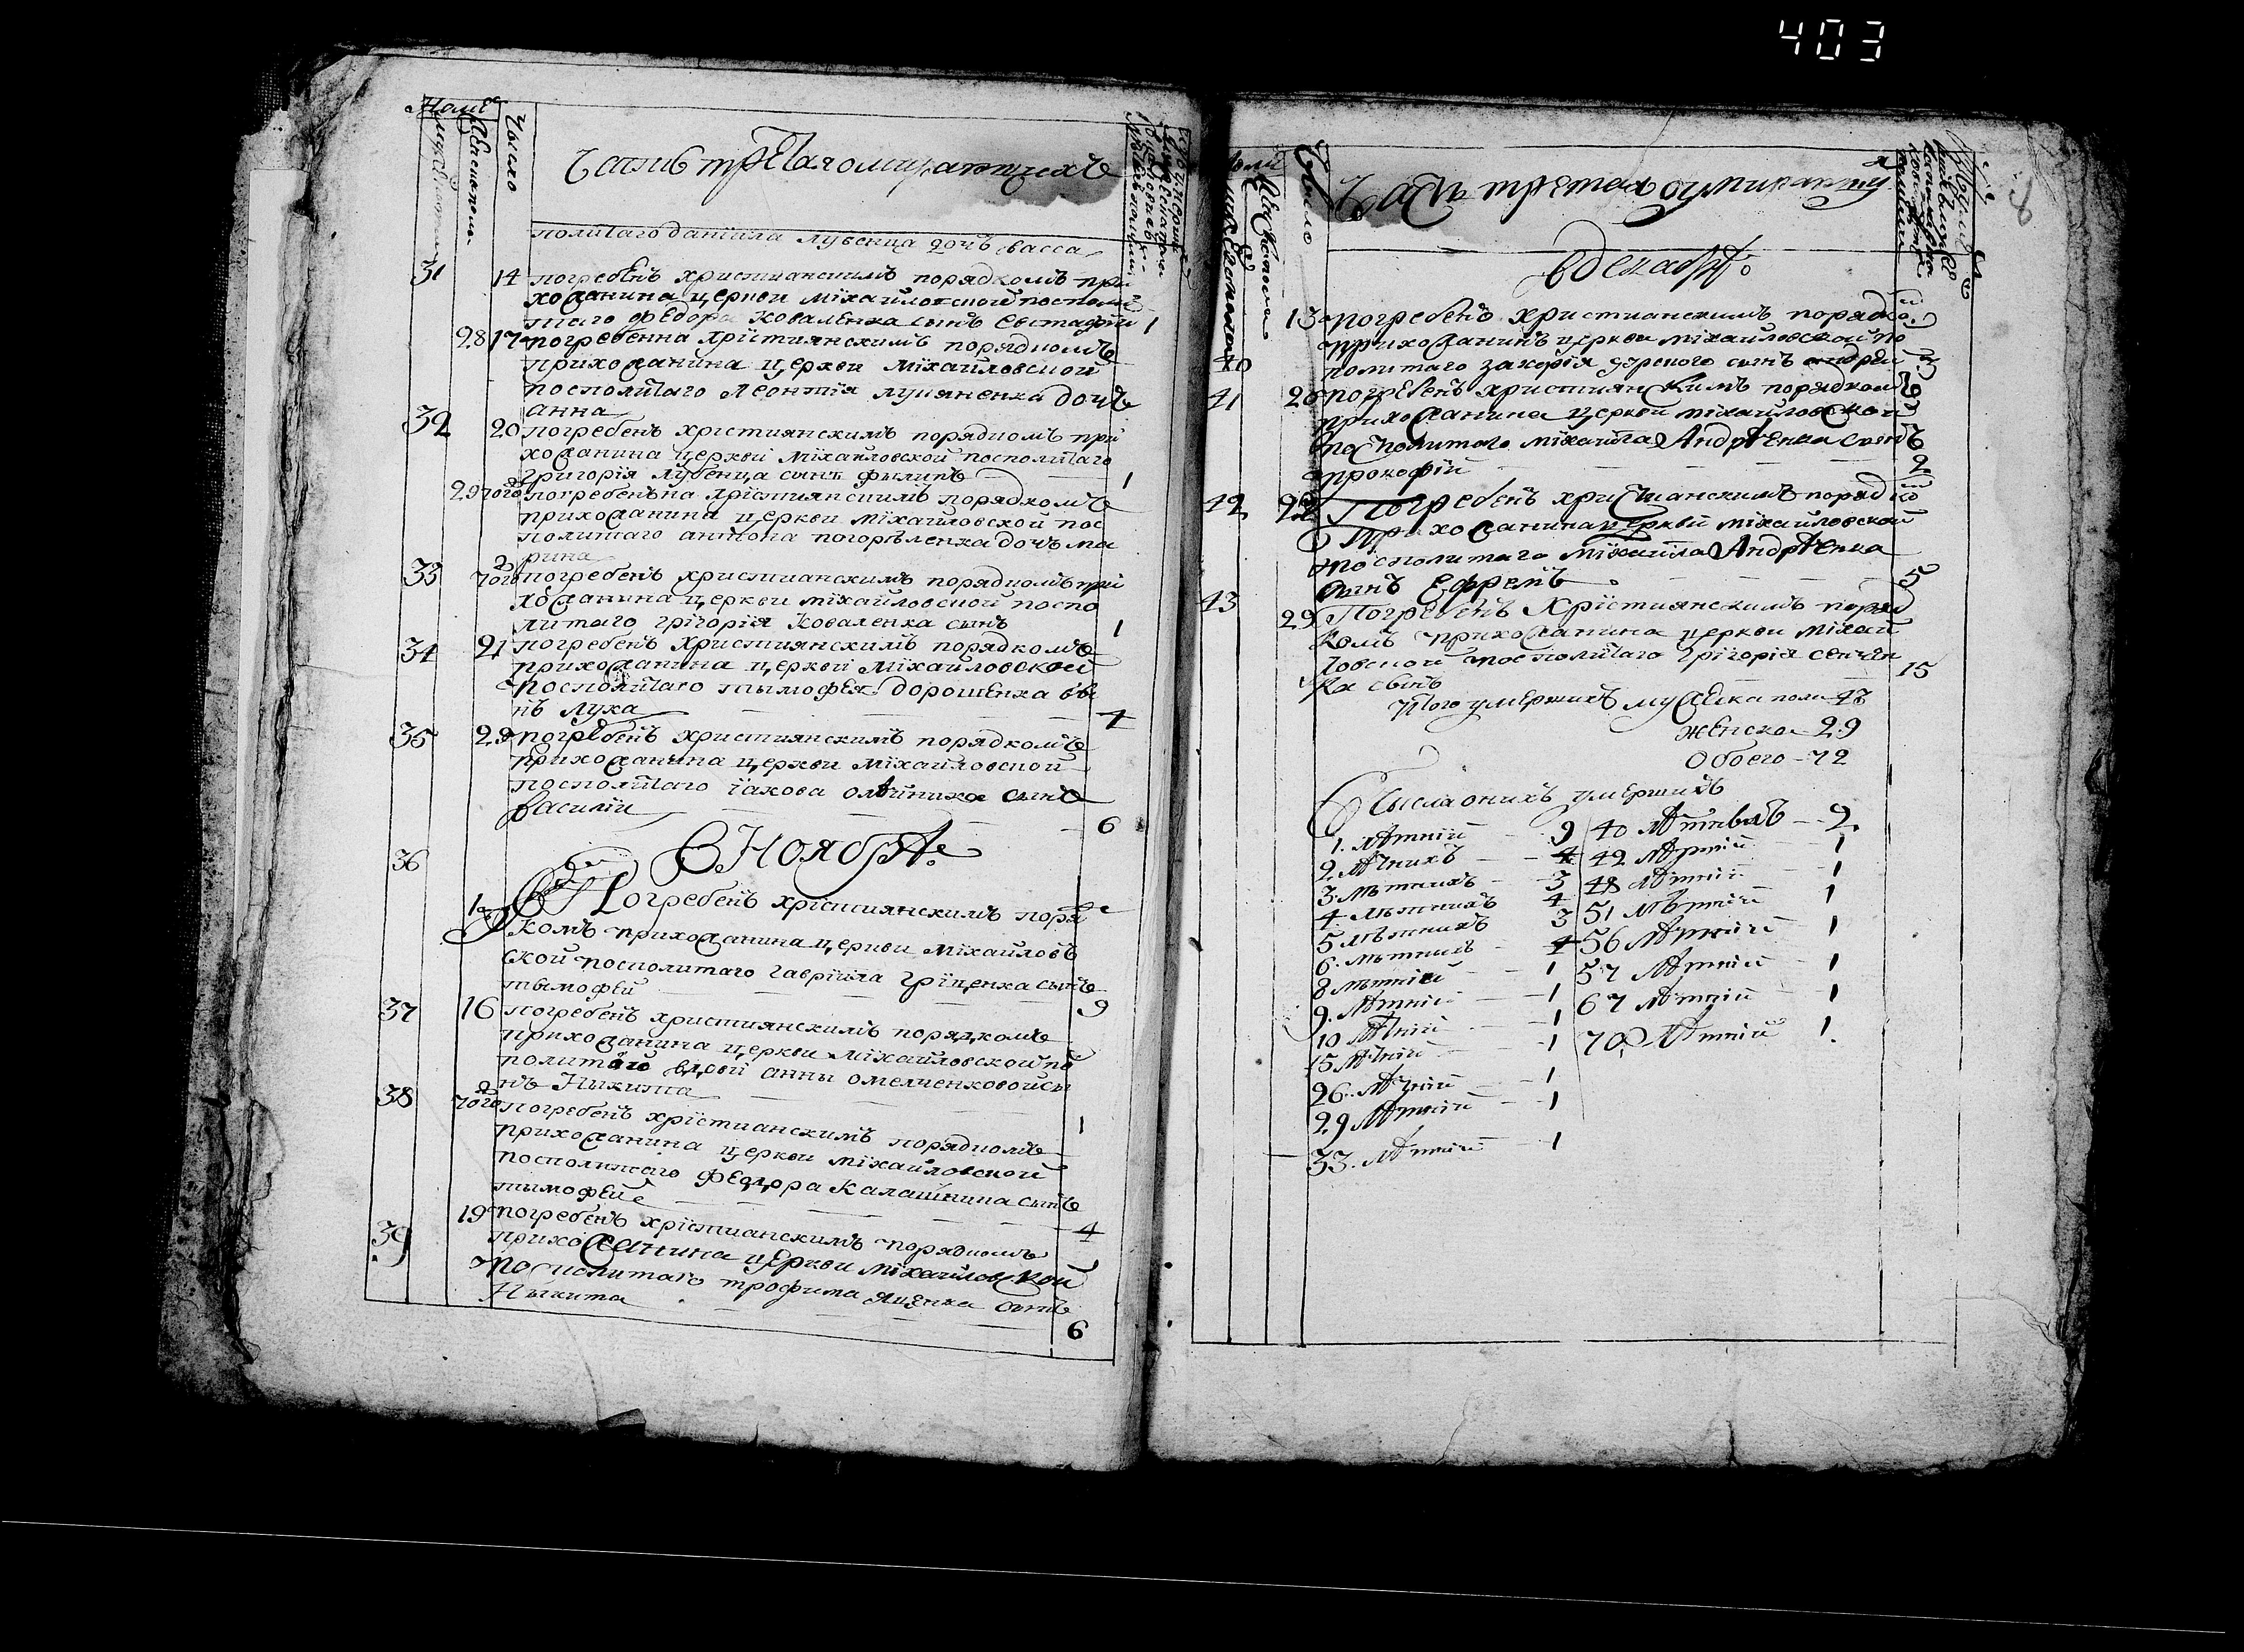 403
Число
Часть третая о умирающихъ
политаго данїила лубенца дочъ васса
31 14 погребенъ христианскимъ порядкомъ при
хожанина церкви міхайловской посполи
таго федора коваленка сынъ евстафій 1
28 17 погребенна християнскимъ порядкомъ
прихожанина церкви міхайловской
посполитаго леонтія лукяненка дочъ
анна
32 20 погребенъ християнскимъ порядкомъ при
хожанина церкви міхайловской посполитаго
григорія лубенца сынъ филипъ 1
29 того погребенъна християнскимъ порядкомъ
прихожанина церкви міхайловской пос
политаго антона погорѣленка дочъ ма
рина
33 того погребенъ христианскимъ порядкомъ при
хожанина церкви міхайловской поспо
литаго грігорія коваленка сынъ 1
34 21 погребенъ християнскимъ порядкомъ
прихожанина церкви міхайловской
посполитаго тымофея дорошенка сы
нъ лука 4
35 29 погребенъ християнскимъ порядкомъ
прихожанина церкви міхайловской
посполитаго іакова олѣйника сынъ
василій 6
В Ноябрѣ
36 1 Погребенъ християнскимъ поряд
комъ прихожанина церкви міхайловъ
ской посполитаго гавріила гріценка сынъ
тымофей 9
37 16 погребенъ християнскимъ порядкомъ
прихожанина церкви міхайловской пос
политой вдовы анны омелченковой сы
нъ Никита 1
38 того погребенъ хрістианскимъ порядкомъ
прихожанина церкви міхайловской
посполитаго федора калашника сынъ
тымофей 4
39 19 погребенъ хрістианскимъ порядкомъ
прихожанина церкви міхайловской
посполитаго трофима яценка сынъ
Никита 6
Число
Часть третая о умирающих
8
в декабрѣ
40 13 погребенъ христианскимъ порядко
прихожанинъ церкви міхайловской по
политаго захорія сынъ андрей 3
41 20 погребенъ християнскимъ порядком
прихожанина церкви міхайловской
посполитаго міхаила Андрѣенка сынъ
прокофій 2
42 22 Погребенъ християнскимъ порядко
Прихожанина церкви міхайловской
посполитаго міхаила Андрѣенка
сынъ Ефремъ 5
43 29 Погребенъ Хрістиянскимъ поряд
комъ прихожанина церкви міхай
ловской посполитаго грігорія сенчен
ка сынъ 15
Итого умершихъ мужеска пола 43
женска 29
Обоего 72
Съ числа онихъ умершихъ
1 лѣтній 9 40 лѣтныхъ 2
2 лѣтнихъ 4 42 лѣтній 1
3 лѣтнихъ 3 48 лѣтній 1
4 лѣтнихъ 4 51 лѣтній 1
5 лѣтнихъ 3 56 лѣтній 1
6 лѣтнихъ 4 57 лѣтній 1
8 лѣтній 1 67 лѣтній 1
9 лѣтній 1 70 лѣтній 1
10 лѣтній 1
15 лѣтній 1
26 лѣтній 1
29 лѣтній 1
33 лѣтній 1